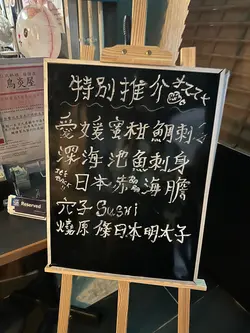 特別推介
愛媛蜜柑鯛刺
深海池魚刺身
日本赤海膽
穴子Sushi
燒原條日本明太子
Reserved